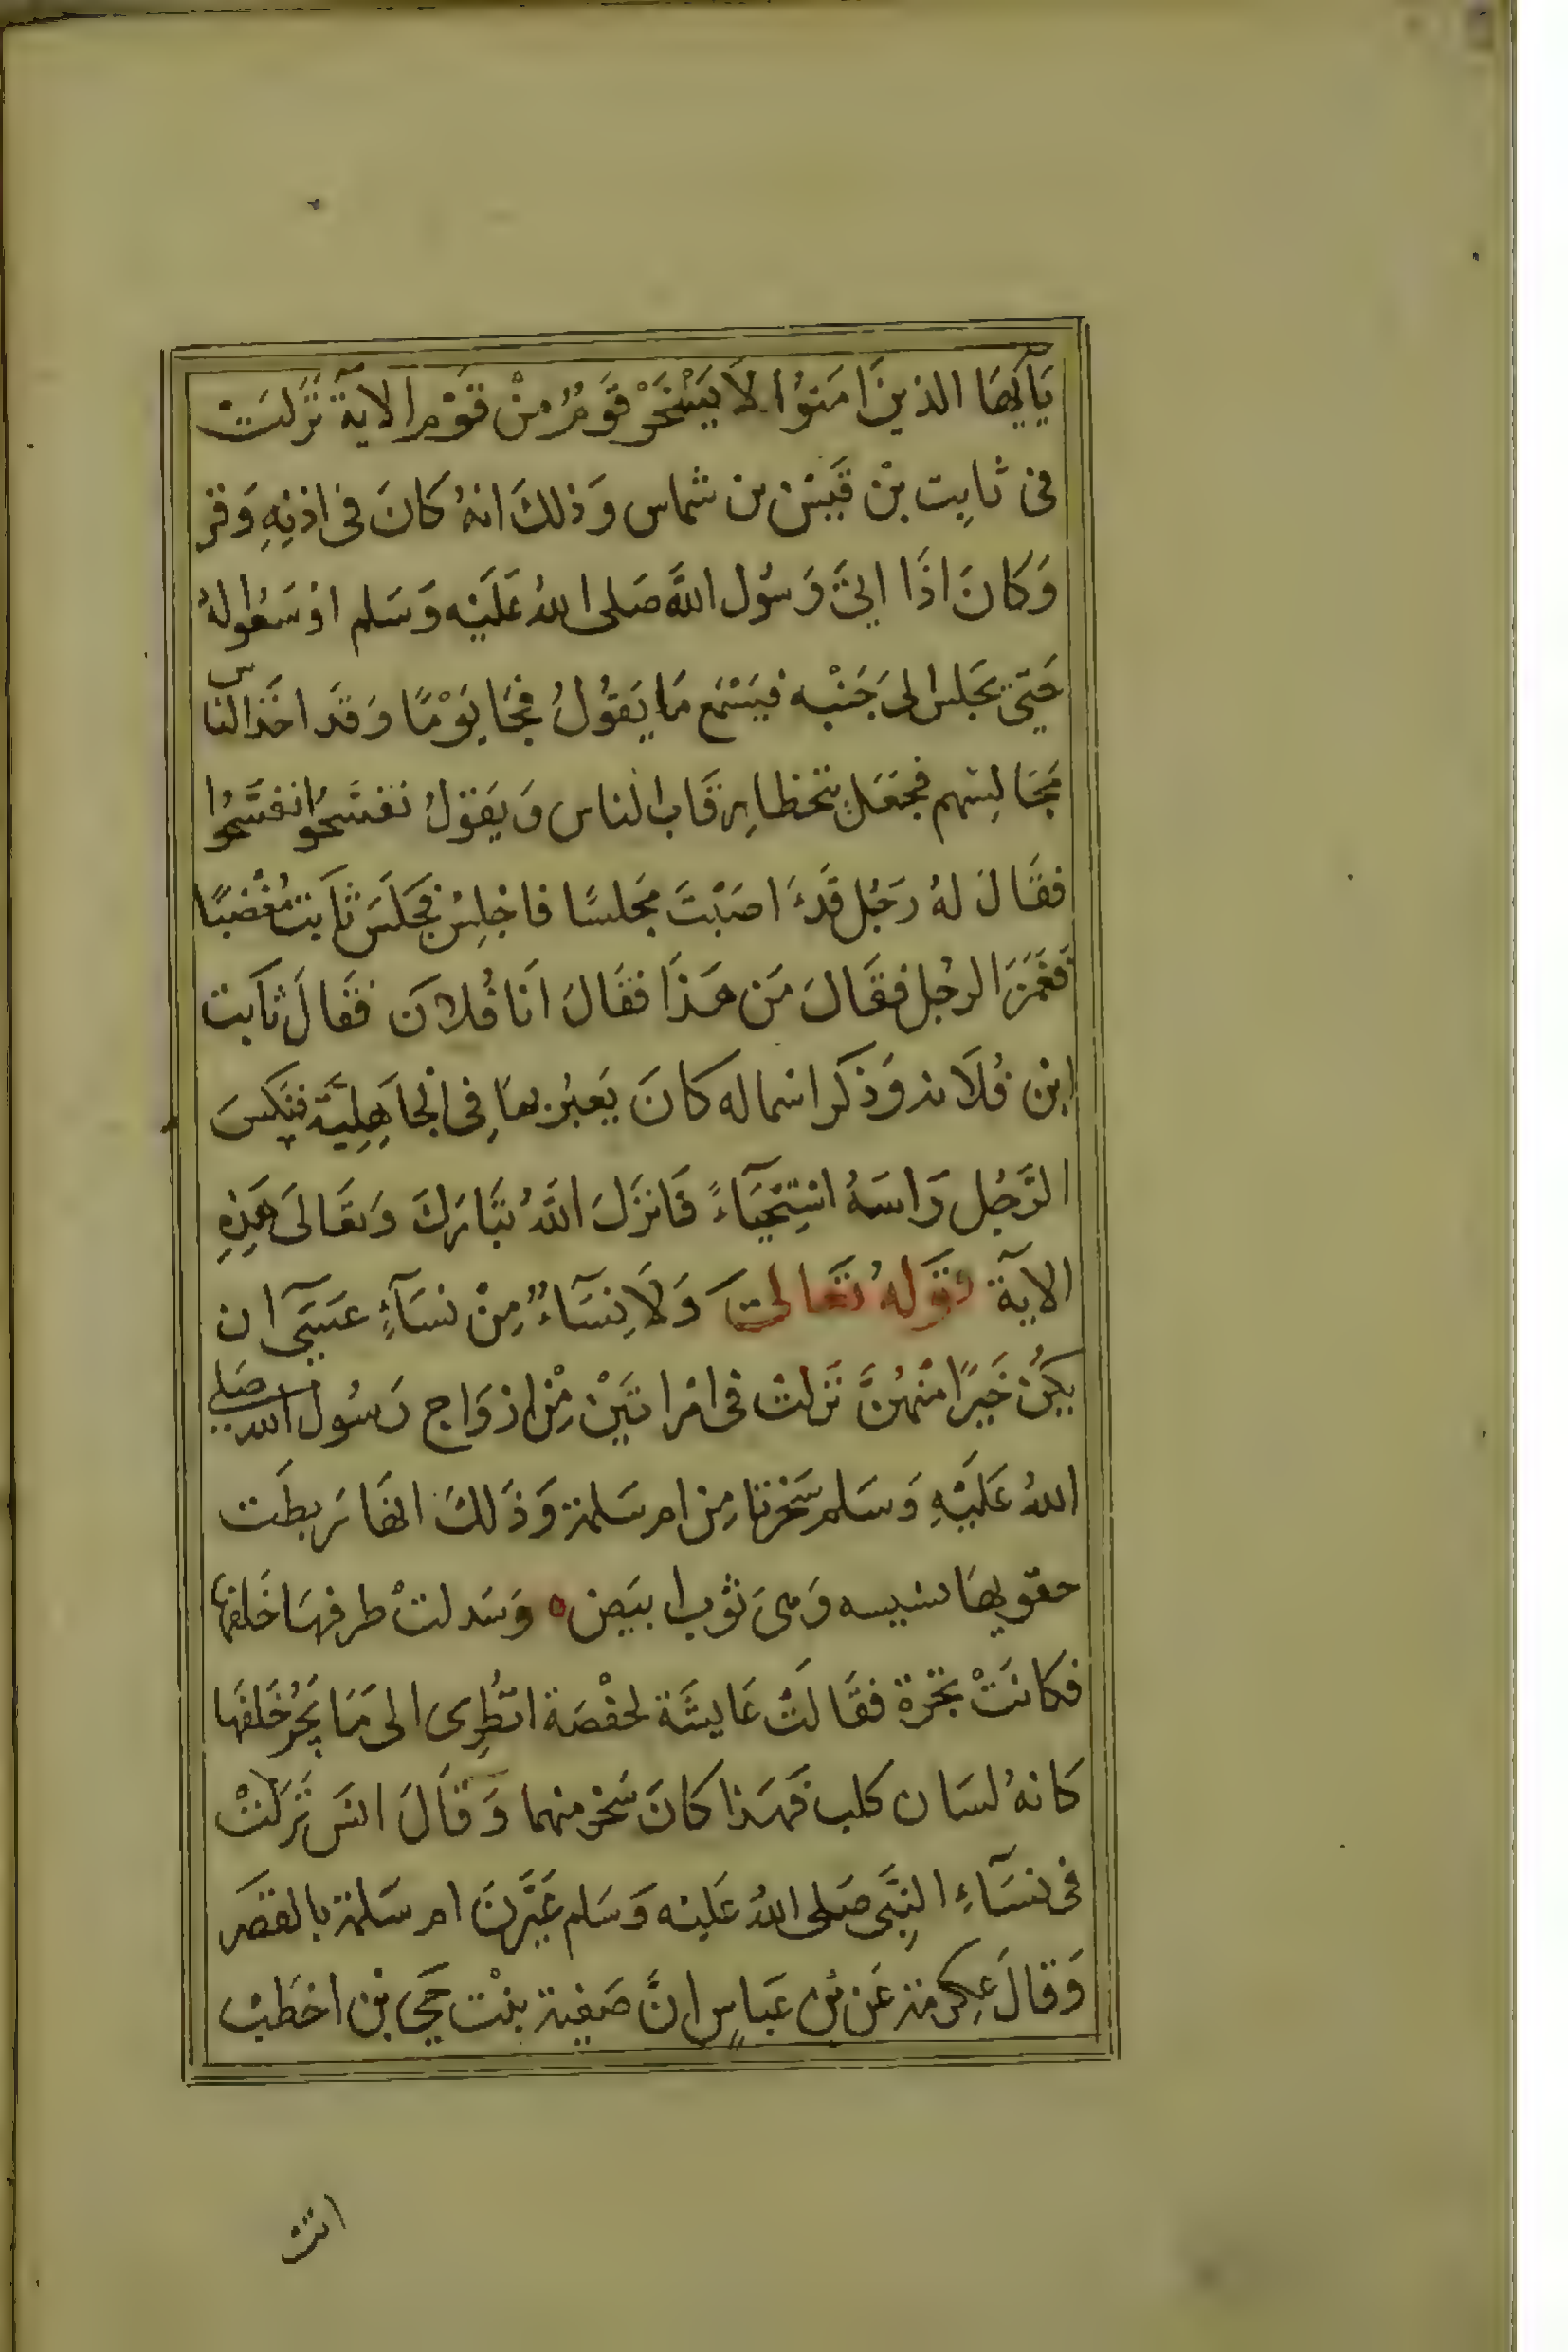 يَاَيُّهَا الذينَ امَنوُا لاَ يَسْخَرْ قَومٌ مِنْ قَوْمٍ الاية نَزَلَتْ
فى ثابِت بْن قَيْسْ بن شماس وَذلكَ انهُ كانَ فى اذنِهِ وَقر
وَكانَ اذَا اتىَ رَسُول اللَّه صَلى اللهُ عَلَيْه وَسَلم اوْسَعُوا لهُ
حَتىّ يجَلس الىَ جَنْبه فيَسْمَع مَا يَقوُلُ فجَا يَوْمًا وَقدَ اخَذ الناس
مَجَالِسَهم فجَعَل يتخطا رِقَاب الناس وَيَقوْلُ تفسَّحُوا تفسَّحُوا
فقَالَ لهُ رَجُل قَدْ اصَبْتَ مجَلسًا فاجْلِسْ فجَلَسَ ثابت مُغْضبًا
فغَمَزَ الرجُل فقَالَ مَن هَذَا فقَالَ انَا فُلان فقَالَ ثابت
ابْن فُلاَنه وَذكَر امًا له كانَ يَعيرُ بهَا فِى الجاَهِليَّة فنكسَ
الرَّجُل رَاسَهُ اسْتِحْيَاءً فَانزَلَ اللَّهُ تبَارَكَ وَتعَالىَ هَذِهِ
الايَة قوَلهُ تعَالىَ وَلاَ نِسَاءٌ مِنْ نسَآءٍ عَسَىَ ان
يكنَّ خَيرًا منْهُنَّ نَزلتْ فى امْراتَيْن مِنْ ازوَاج رَسُول الله صَلى
اللهُ عَلَيْهِ وَسَلم سَخرتا مِن ام سَلمة وَذَلكَ انهَا رَبطَت
حقويهَا بسبيبه وَهىَ ثوْب ابيَض ه وَسَدلتْ طرفهَا خَلفهَا
فكانَتْ تجَرة فقَالَتْ عَايشَة لحفْصَة انظُرِى الى مَا تجَرُ خَلفهَا
كانهُ لسَان كلب فَهَذا كانَ سَخرِمنهما وَقاَلَ انَس نَزَلتْ
فى نسَآءِ النبَّى صَلى اللهُ عَليْه وَسَلم عَيَّرنَ ام سَلمة بالقصَر
وَقالَ عِكرمَة عَن بْن عَباسٍ انَّ صَفية بنْت حَيى بْن اخطَبْ
اتت